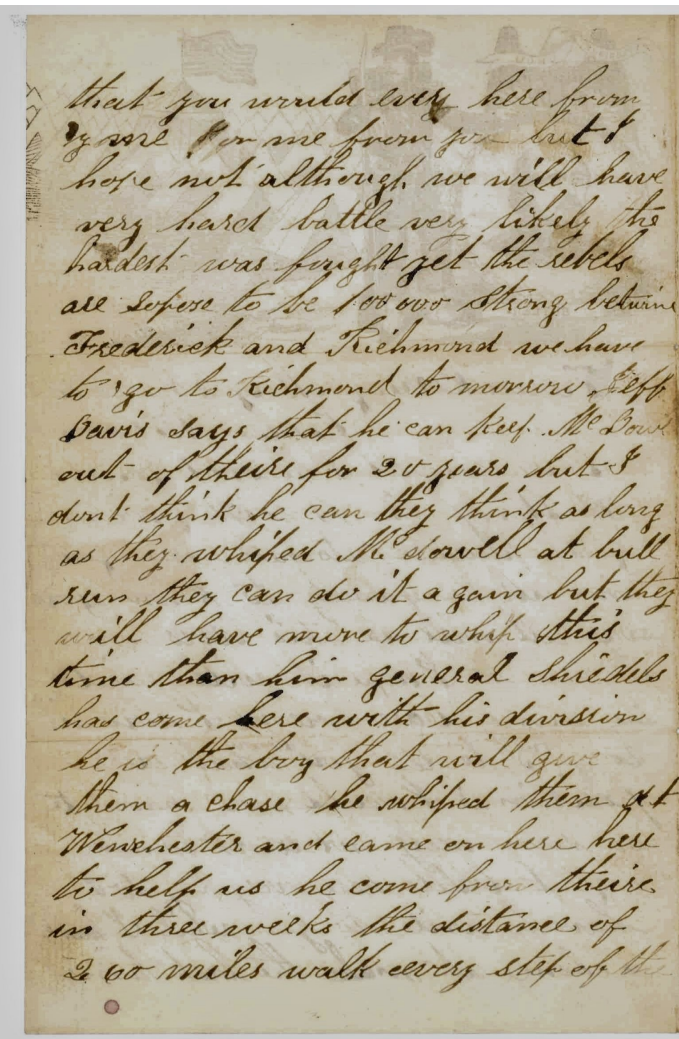 that you would ever here from
me or me from you but I
hope not although we will have
very hard battle very likely the
hardest was fought yet the rebels
are sopose to be 100 000 strong
Frederick and Richmond we have
to go to Richmond to morrow Jeff
Davis says that he can keep Mc
out of theire for 20 years but I
dont think he can they think as long
as they whiped Mc dowell at bull
run they can do it a gain but they
will have more to whip this
time than him general Shiedels
has come here with his division
he is the boy that will give
them a chase he whiped them at
Winchester and came on here here
to help us he come from theire
in three weeks the distance of
260 miles walk every step of the